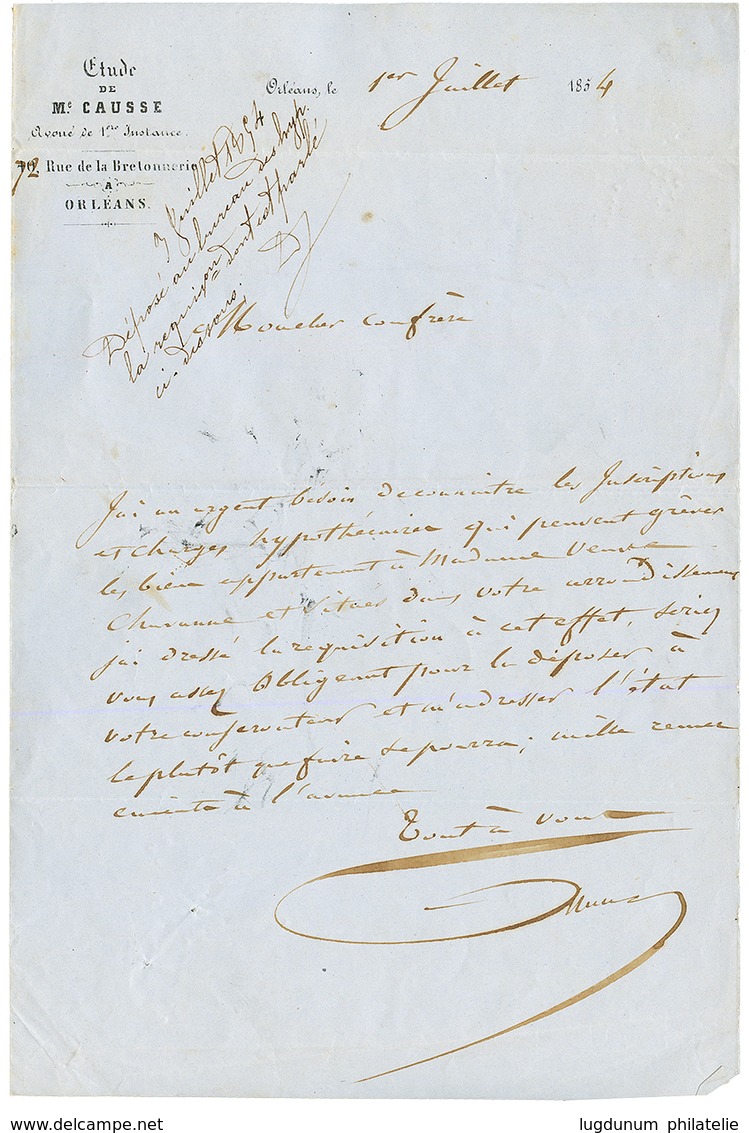 Etude
DE
Mᵉ CAUSSE
Avoué de 1ʳᵉ Instance,
72 Rue de la Bretonnerie
A
ORLÉANS.
Orléans, le 1er Juillet 1854
3 Juillet 1854
Déposé au bureau des hyp.
la requison dont est parlé
ci-dessous.
Mon cher confrère
J'ai un urgent besoin de connaitre les Inscriptions
et charges hypothécaires qui peuvent grèver
les biens appartenant à Madame Veuve
Chavanne et situés dans votre arrondissement
j'ai dressé la requisition à cet effet, seriez
vous assez obligeant pour la déposer à
votre conservateur et m'adresser l'état
le plutôt que faire se pourra; mille remer
ciments à l'avance
Tout à vous
lugdunum philatelie
www.delcampe.net